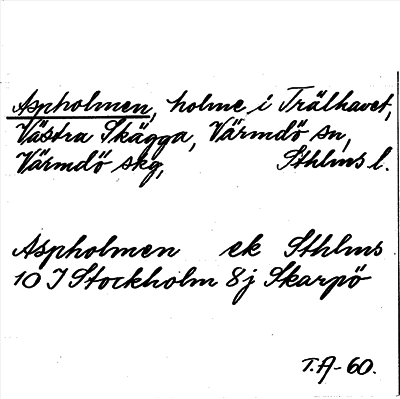 Aspholmen, holme i Trälhavet,
Västra Skägga, Värmdö sn,
Värmdö skg, Sthlms l.
Aspholmen ek Sthlms
10 J Stockholm 8j Skarpö
T.A-60.